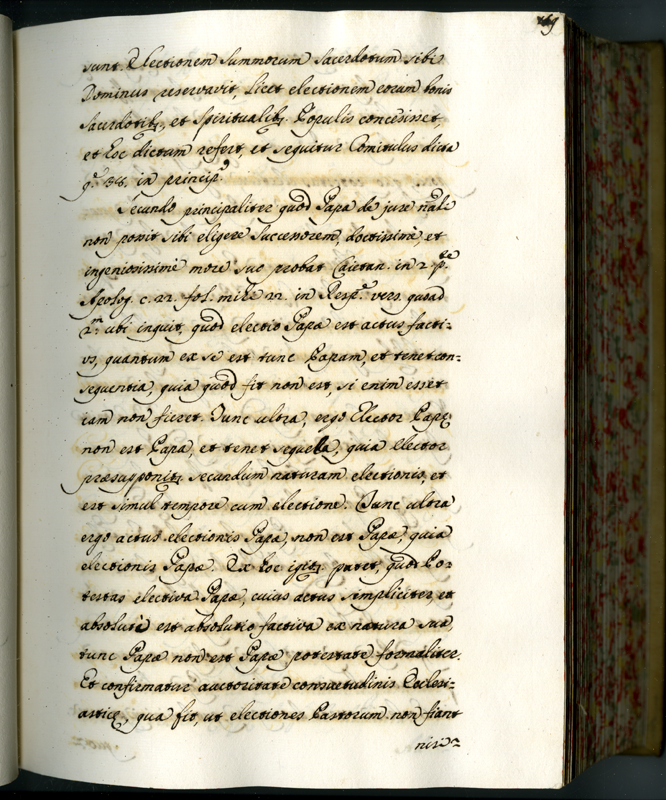 169
sunt. Electionem summorum sacerdotum sibi
Dominus reservavit, licet electionem eorum bonis
sacerdotib., et spiritualib. Populis concesisset
et hoc dictum refert, et sequitur Comitulus dicta
q. 38. in princip.
Secundo principaliter quod Papa de jure nãli
non possit sibi eligere successorem, doctissimè, et
ingeniosissimè more suo probat Caietan. in 2. p.te
Apolog. c. 22. fol. mihi 22. in Resp. vers. quoad
2.m ubi inquit, quod electio Papæ est actus facti-
vs, quantum ex se est tunc Papam, et tenet con=
sequentia, quia quod fit non est, si enim esset
iam non fieret. Tunc ultra, ergo Elector Papę
non est Papa, et tenet sequela, quia elector
præsupponit. secundum naturam electionis, et
est simul tempore cum electione. Tunc ultra
ergo actus electionis Papæ, non est Papæ, quia
electionis Papæ. Ex hoc igit. patet, quod Po-
testas electiva Papæ, cuius actus simpliciter, et
absolutè est absolutio factiva ex natura sua
tunc Papæ non est Papæ potestate formaliter.
Et confirmatur auctoritate consuetudinis Ecclesi-
asticę, qua fit, ut electiones Pastorum non fiant
nisi